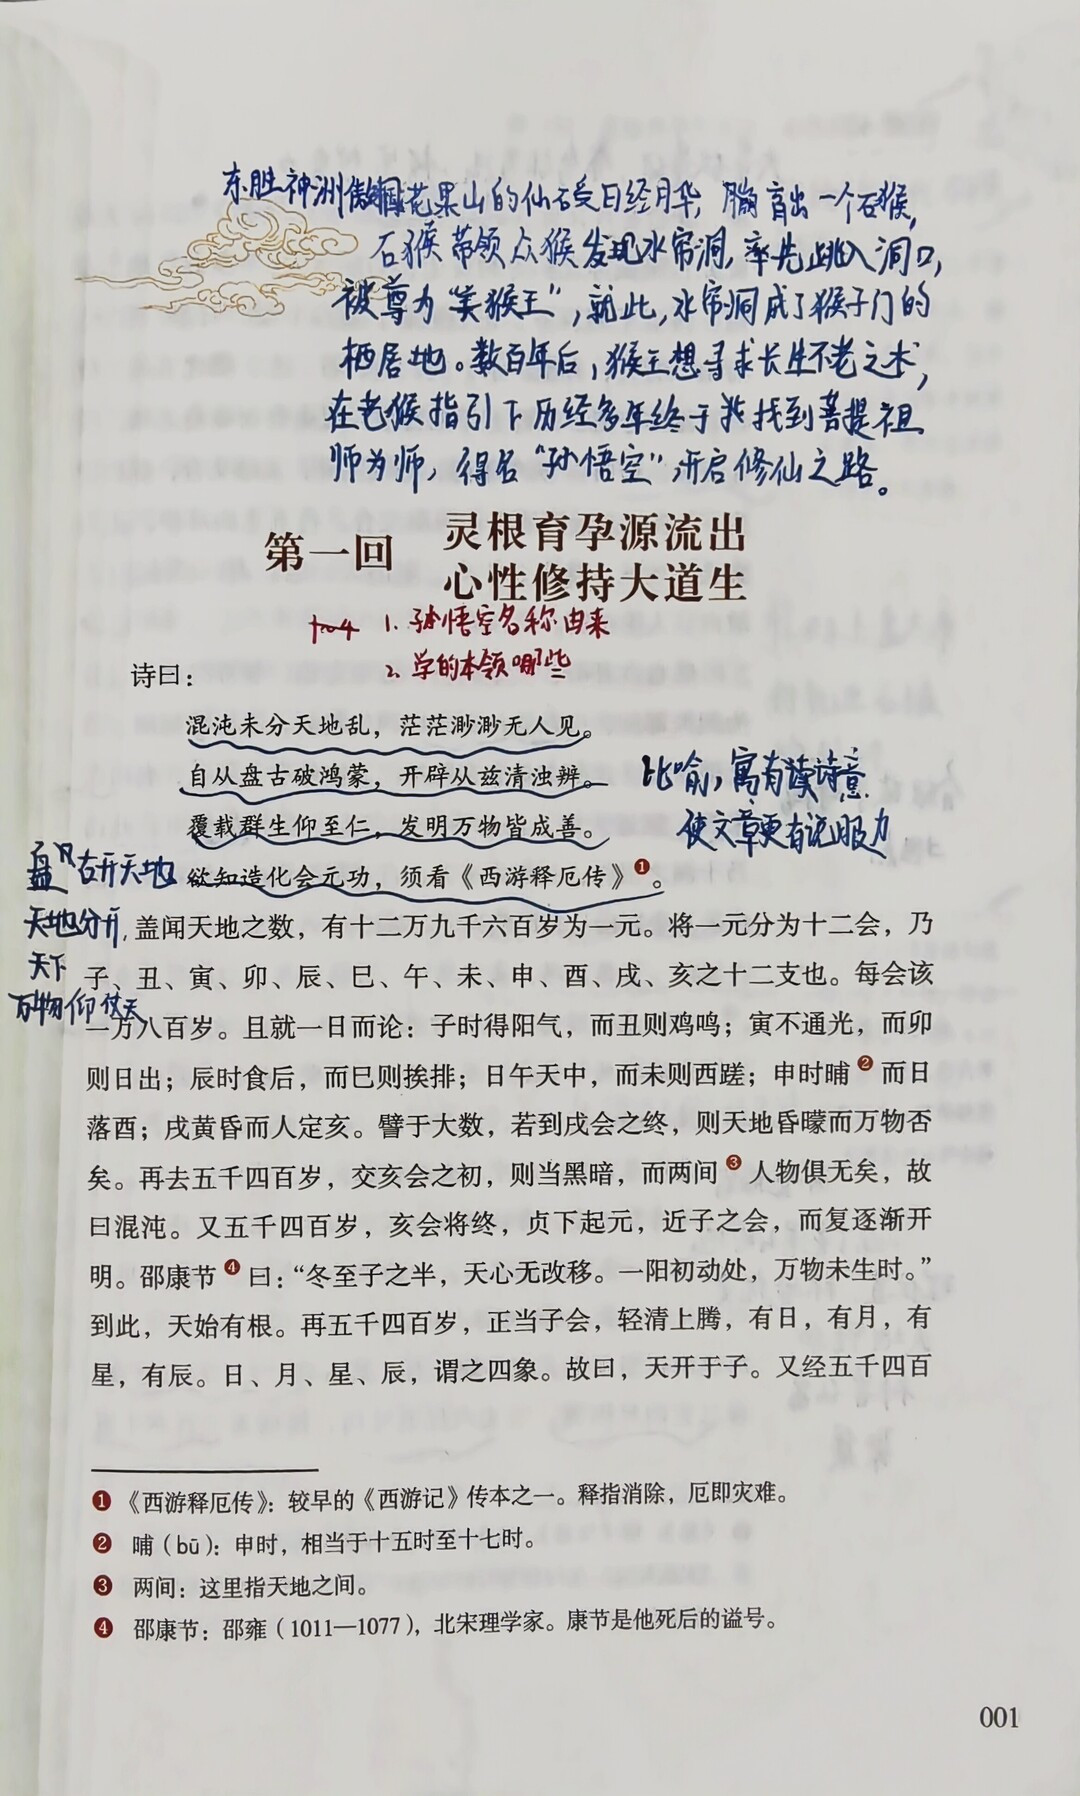 东胜神洲傲国花果山的仙石受日经月华，胸育出一个石猴，
石猴带领众猴发现水帘洞，率先跳入洞口，
被尊为“美猴王”，就此，水帘洞成了猴子门的
栖居地。数百年后，猴王想寻求长生不老之术，
在老猴指引下历经多年终于找到菩提祖
师为师，得名“孙悟空”开启修仙之路。
第一回 灵根育孕源流出
心性修持大道生
1. 孙悟空名称由来
2. 学的本领哪些
诗曰：
混沌未分天地乱，茫茫渺渺无人见。
自从盘古破鸿蒙，开辟从兹清浊辨。
覆载群生仰至仁，发明万物皆成善。
欲知造化会元功，须看《西游释厄传》❶。
比喻，寓有读诗意
使文章更有说服力
盘古开天地
天地分开，
天下
万物仰仗天
盖闻天地之数，有十二万九千六百岁为一元。将一元分为十二会，乃
子、丑、寅、卯、辰、巳、午、未、申、酉、戌、亥之十二支也。每会该
一万八百岁。且就一日而论：子时得阳气，而丑则鸡鸣；寅不通光，而卯
则日出；辰时食后，而巳则挨排；日午天中，而未则西蹉；申时晡❷而日
落酉；戌黄昏而人定亥。譬于大数，若到戌会之终，则天地昏曚而万物否
矣。再去五千四百岁，交亥会之初，则当黑暗，而两间❸人物俱无矣，故
曰混沌。又五千四百岁，亥会将终，贞下起元，近子之会，而复逐渐开
明。邵康节❹曰：“冬至子之半，天心无改移。一阳初动处，万物未生时。”
到此，天始有根。再五千四百岁，正当子会，轻清上腾，有日，有月，有
星，有辰。日、月、星、辰，谓之四象。故曰，天开于子。又经五千四百
❶ 《西游释厄传》：较早的《西游记》传本之一。释指消除，厄即灾难。
❷ 晡（bū）：申时，相当于十五时至十七时。
❸ 两间：这里指天地之间。
❹ 邵康节：邵雍（1011—1077），北宋理学家。康节是他死后的谥号。
001